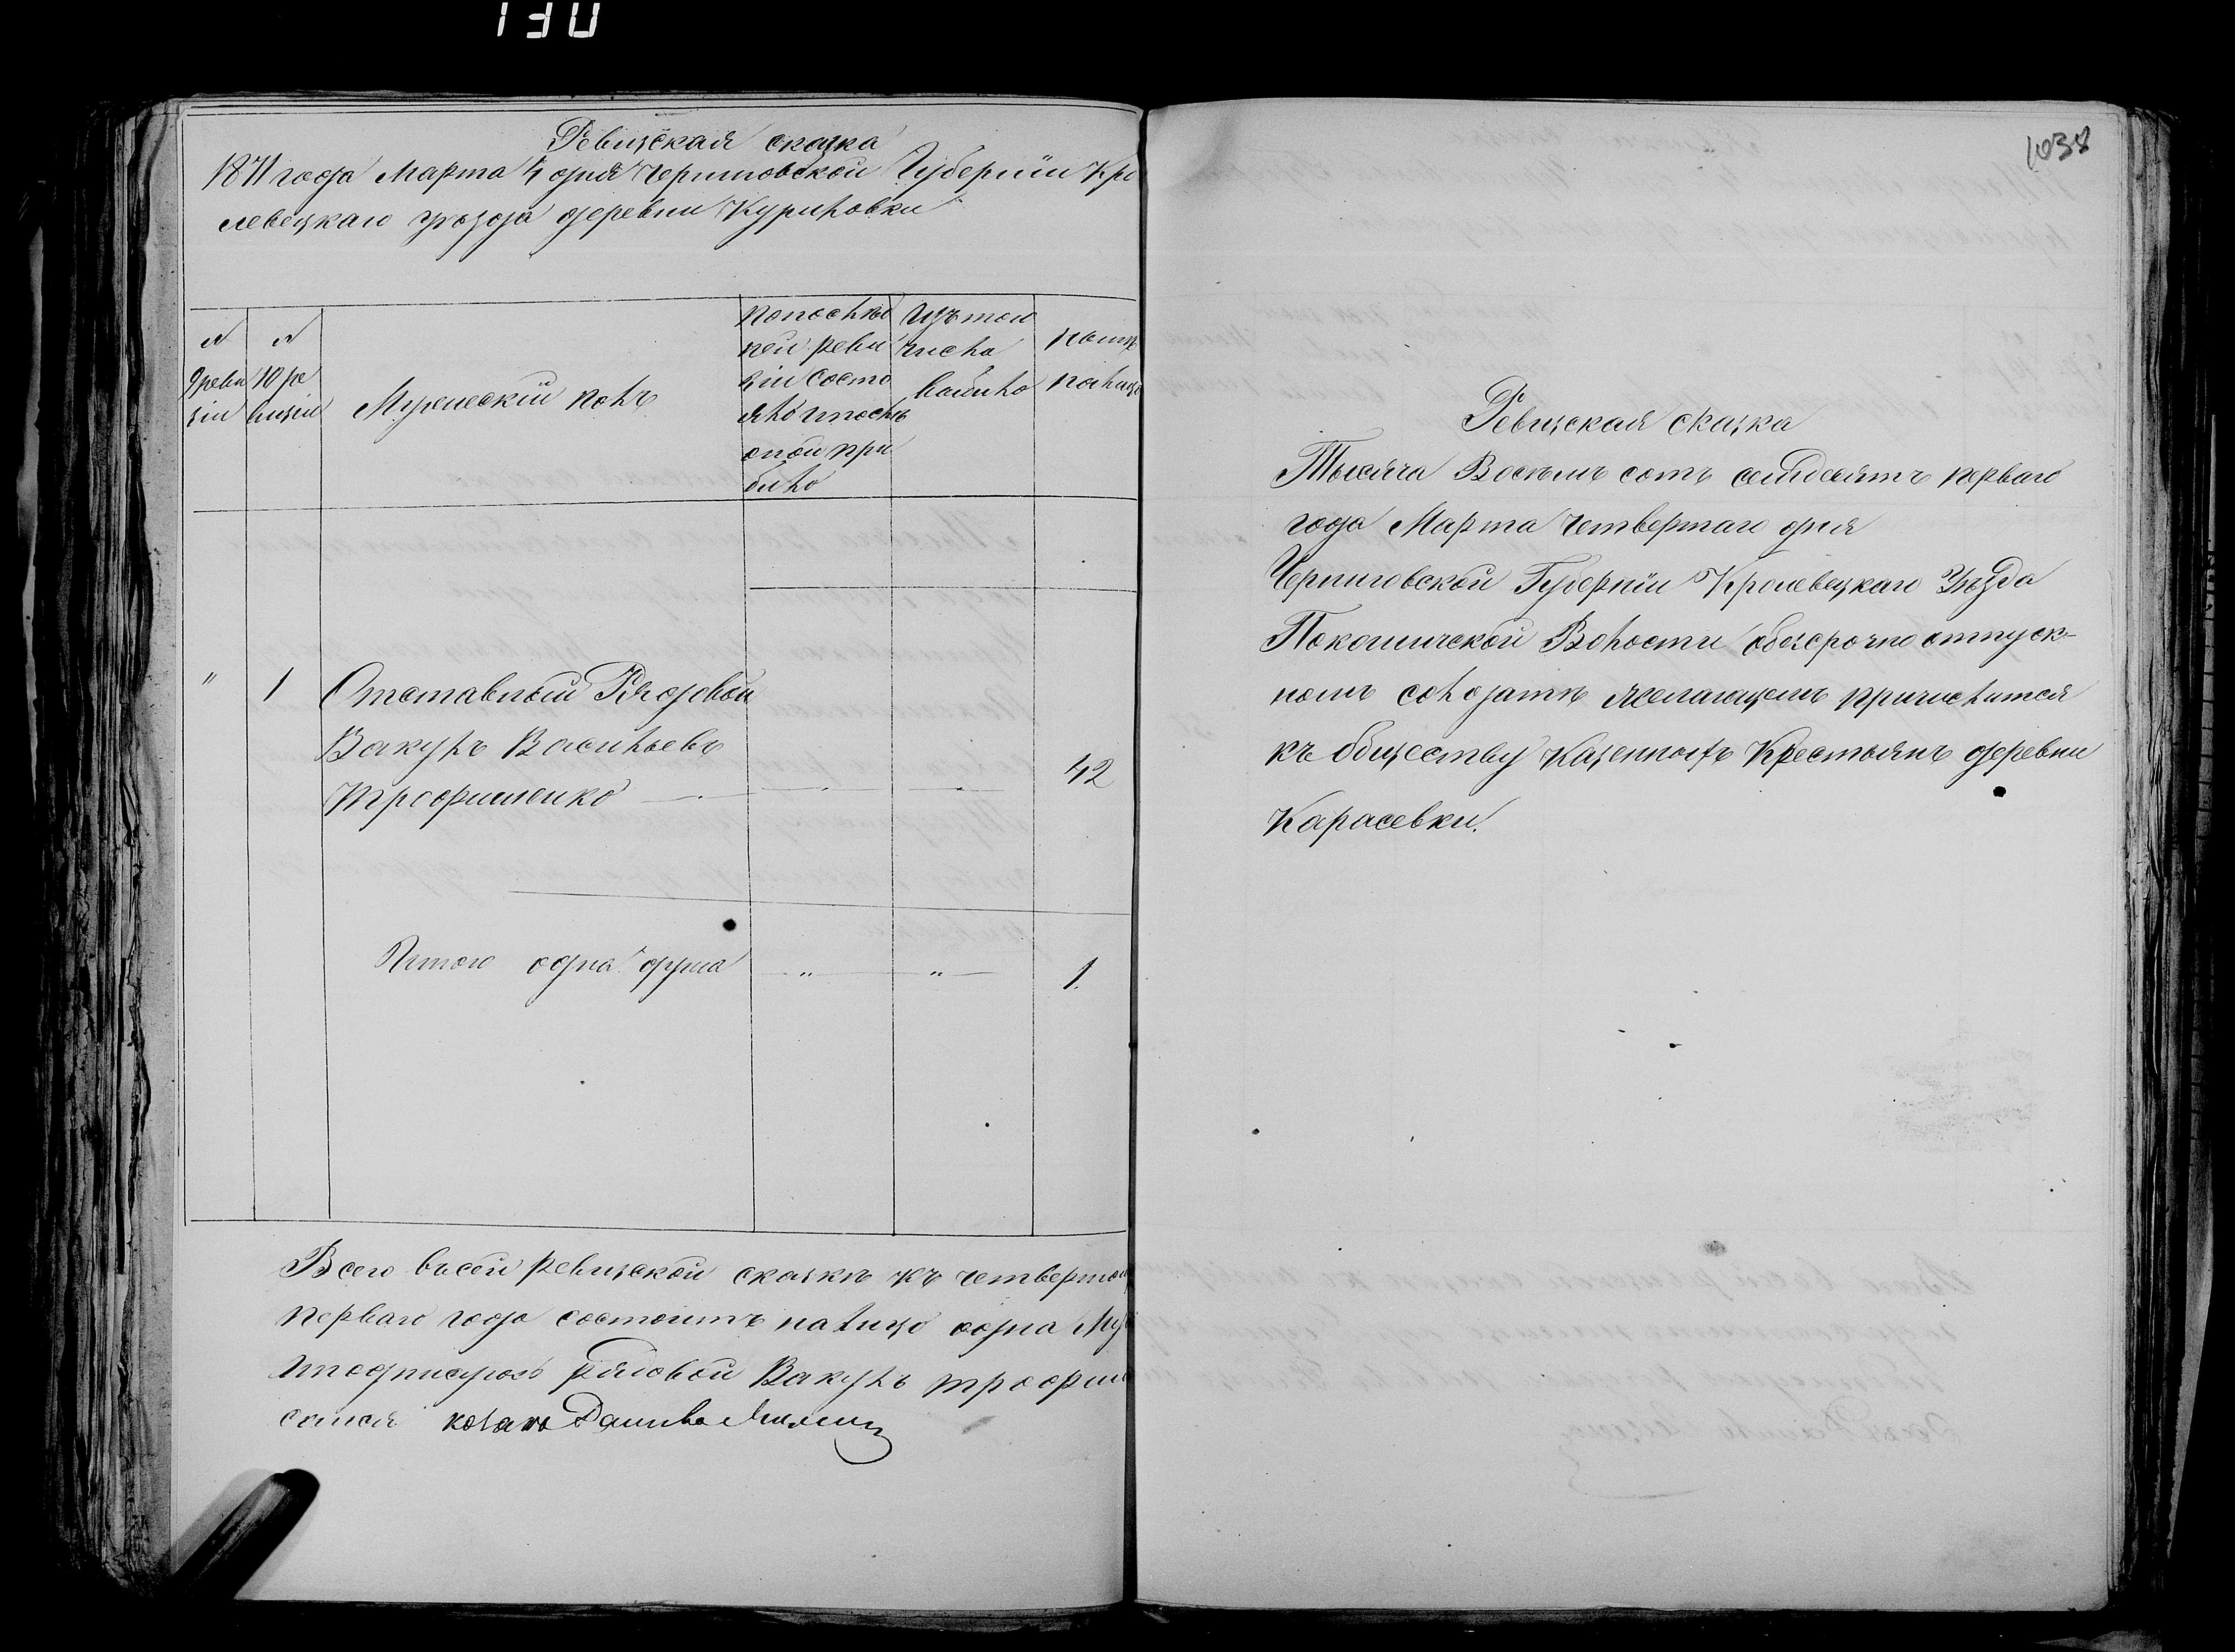 130
Ревизская сказка
1871 года Марта 4 дня Черниговской Губернїи Кро
левецкаго уѣзда деревни Куриловки
№ 9 реви зіи
№ 10 ре визіи
Мужескїй полъ
По послѣд ней реви зіи состо яло и послѣ оной при было
Изъ того числа выбило
Ныне на лицо
" 1 Отставный Рядовой
Вакулъ Васильевъ
Трофименко 42
Итого одна душа " " 1
Всего въ сей ревизской сказкѣ къ четвертом
перваго года состоитъ налицо одна Му
рядовой Вакулъ Трофим
козакъ Данило
1038
Ревизская сказка
Тысяча Восемъ сотъ семдесятъ перваго
года Марта четвертаго дня
Черниговской Губернїи Кролевецкаго Уѣзда
Покошичской Волости о безсрочно отпуск-
номъ солдатѣ желающемъ причислится
къ обществу Казенныхъ Крестьянъ деревни
Карасевки.